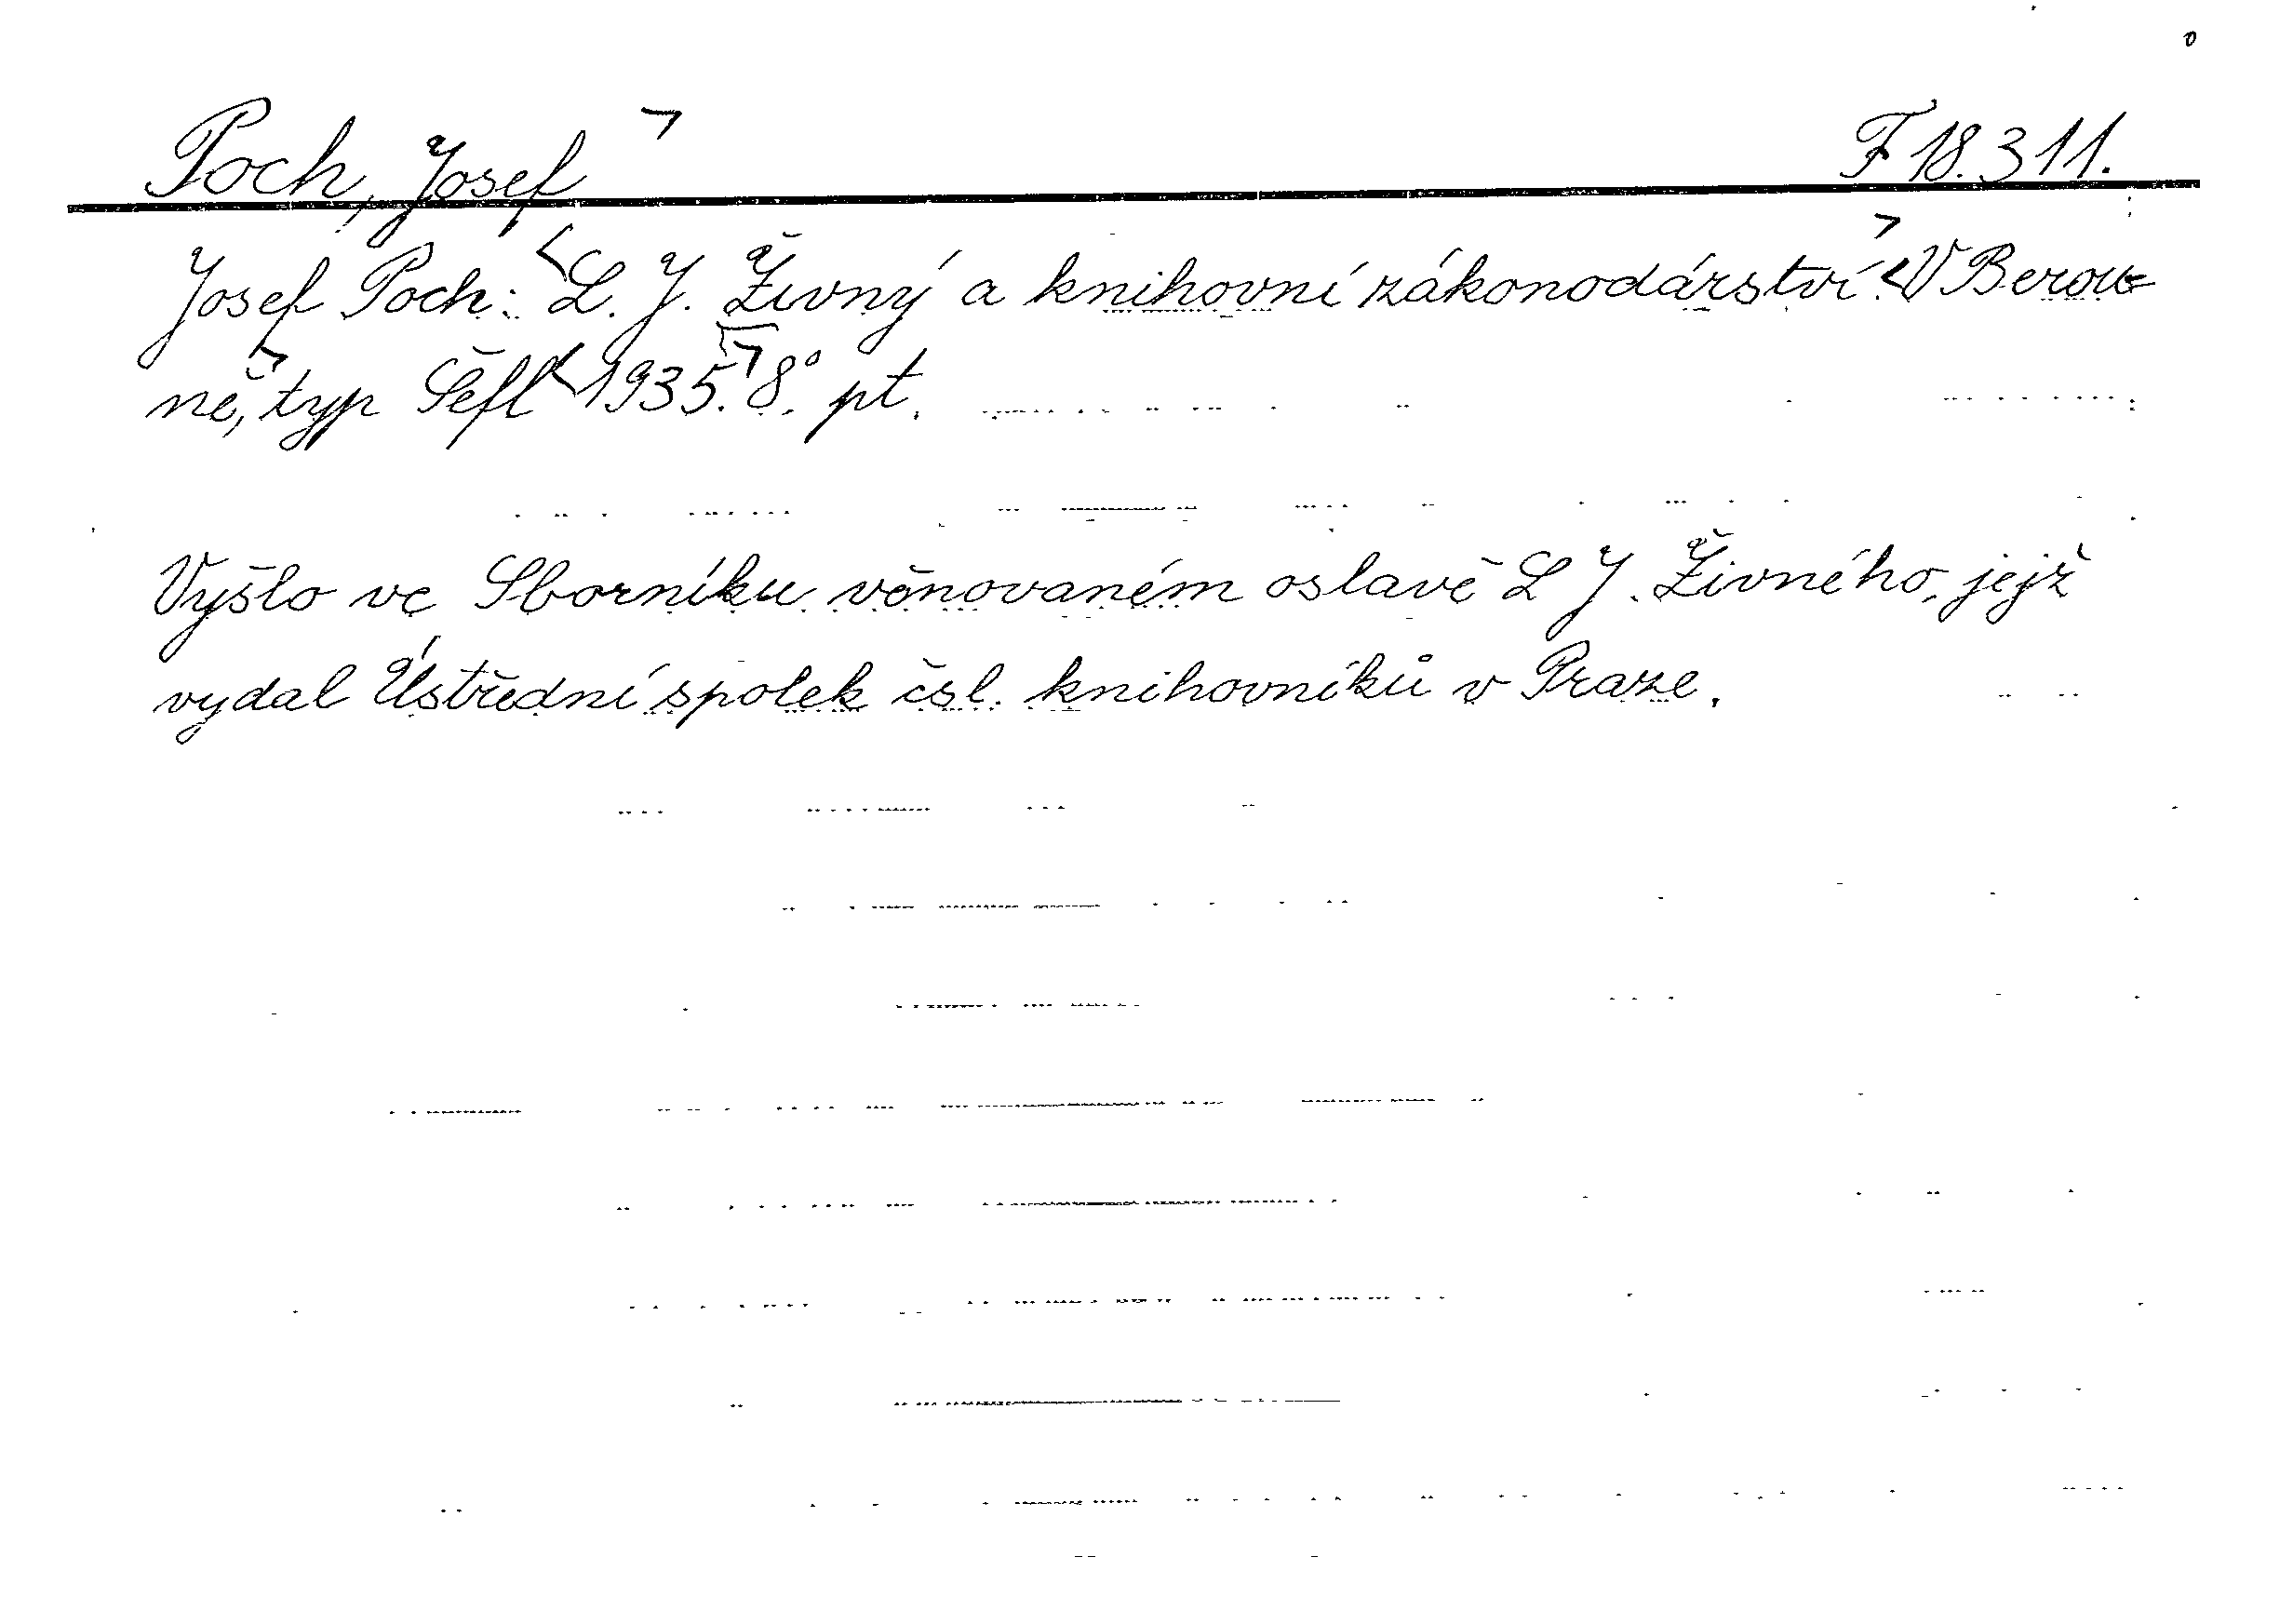 Poch, Josef F 18.311.
Josef Poch: L. J. Živný a knihovní zákonodárství. V Berou-
ně, typ Šefl 1935. 8°. pt.
Vyšlo ve Sborníku věnovaném oslavě L J. Živného, jejž
vydal Ústřední spolek čsl. knihovníků v Praze.